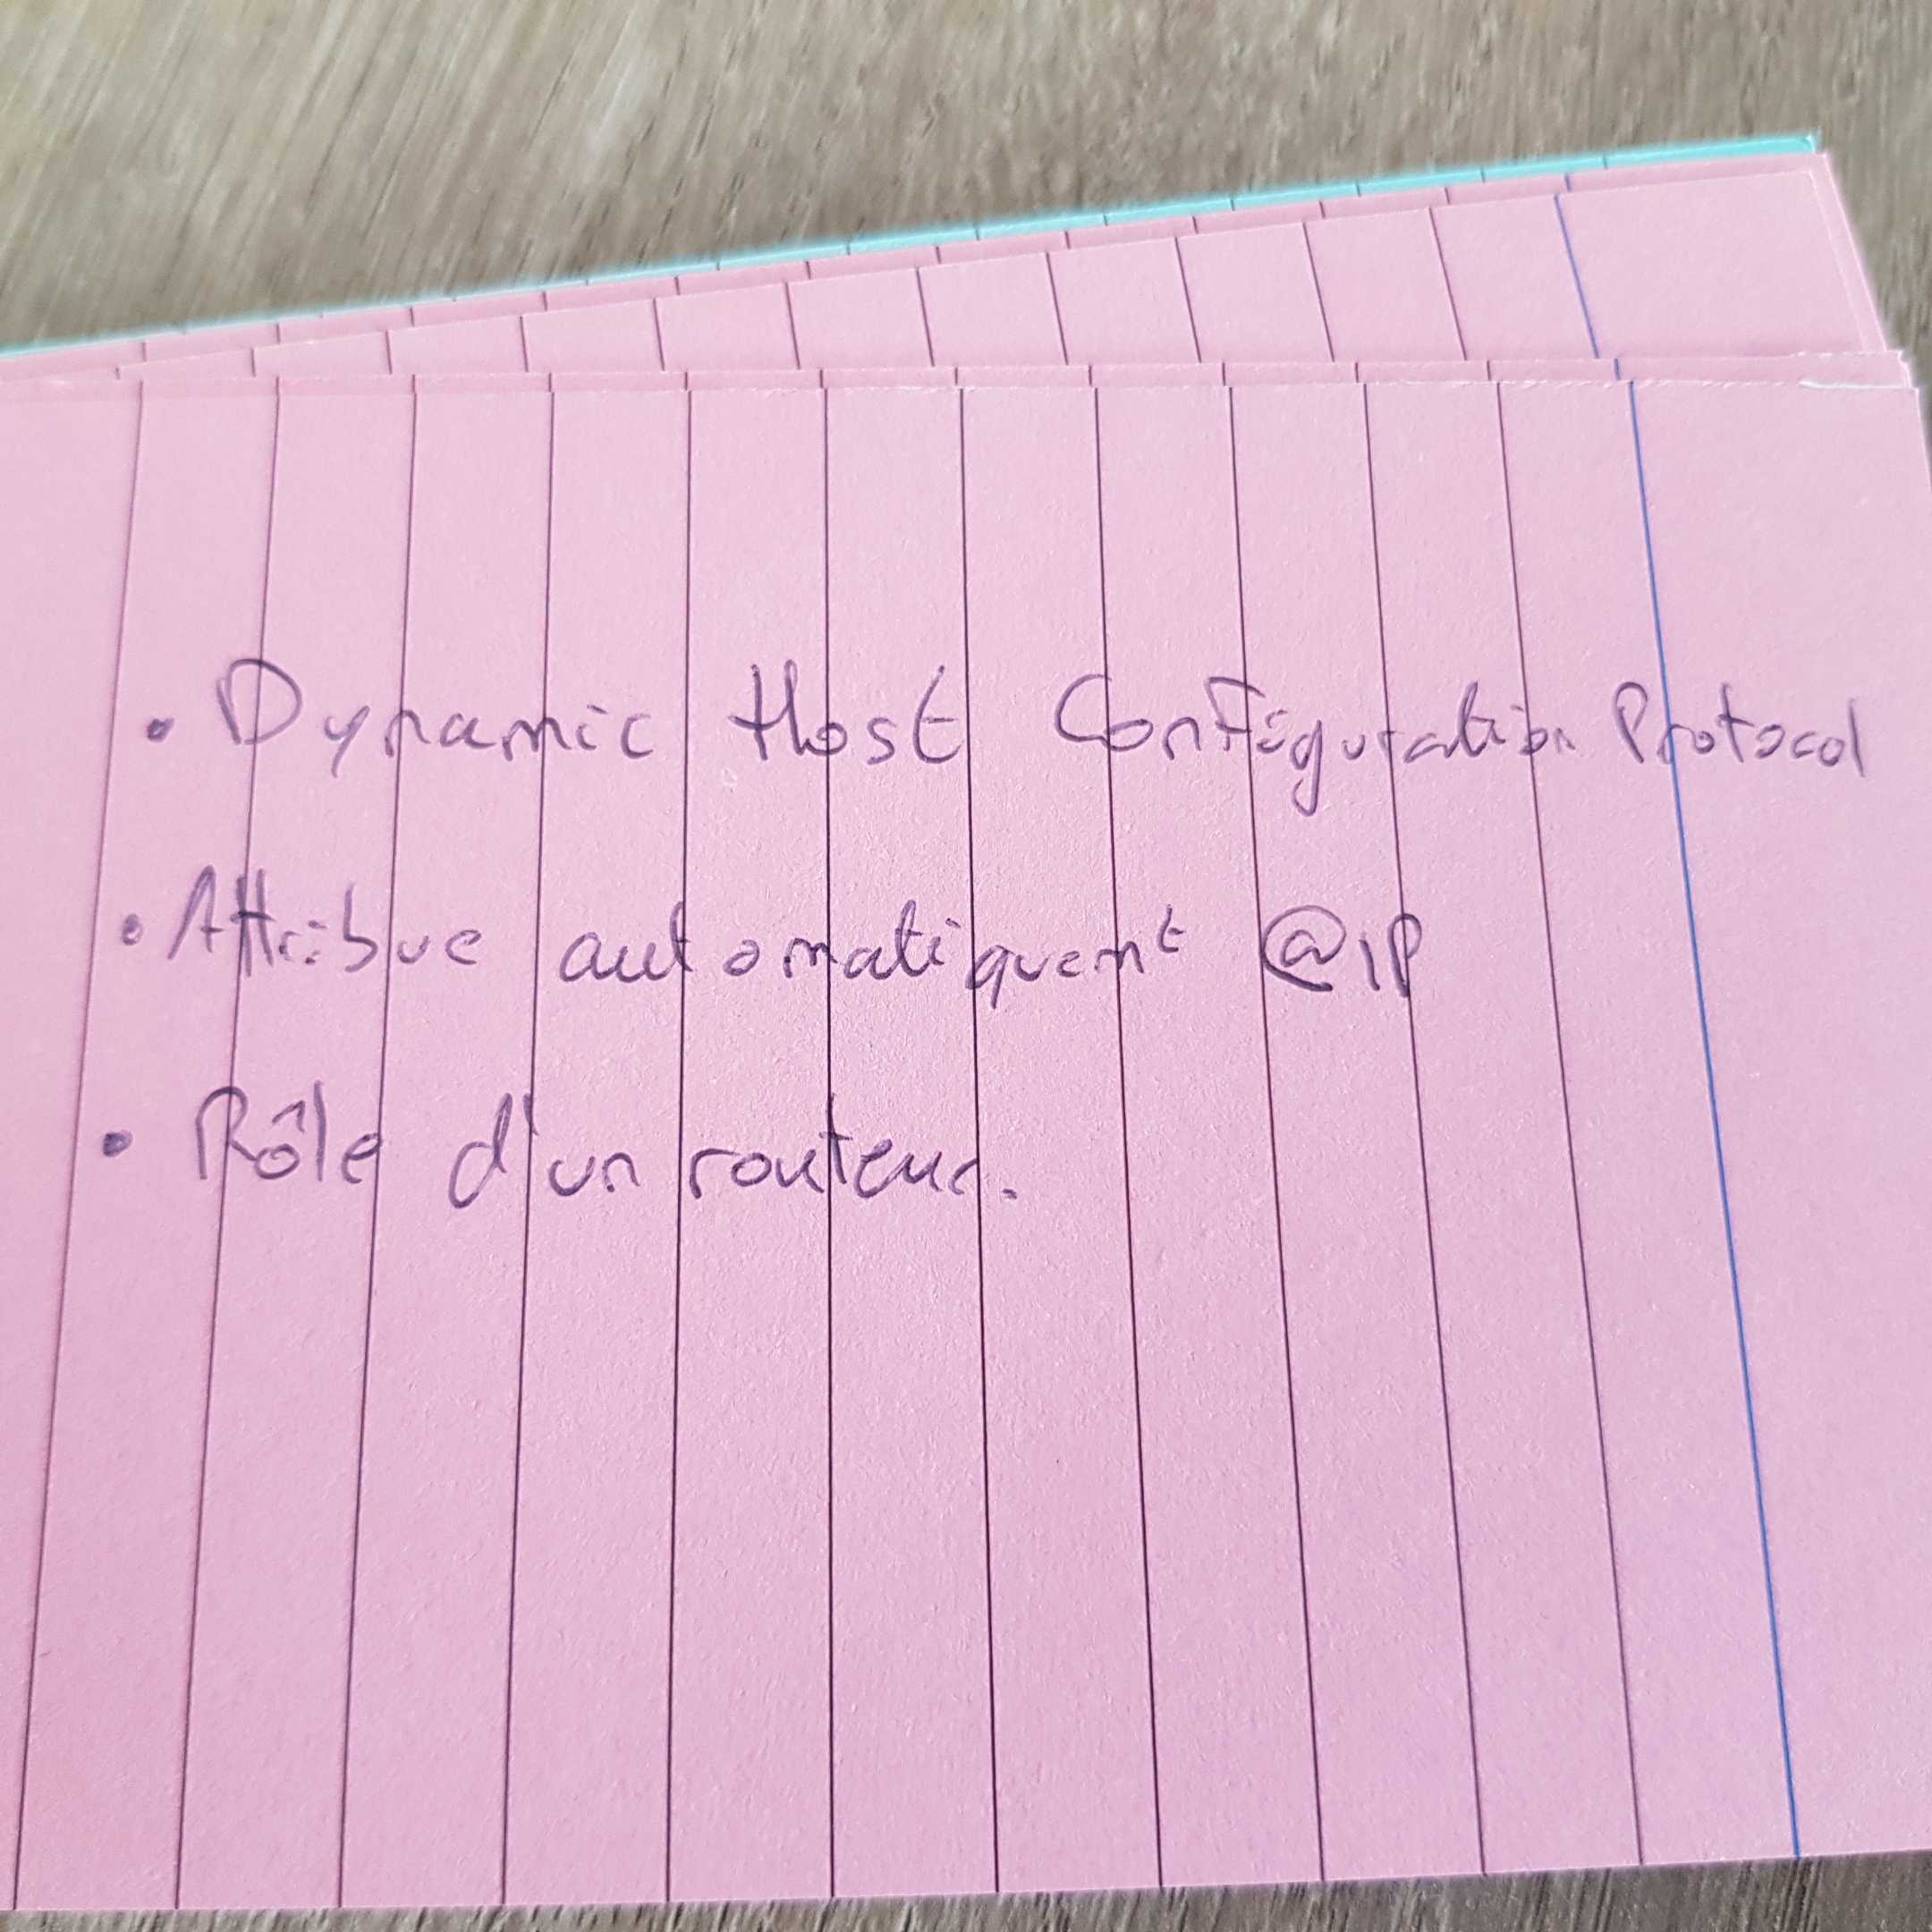 • Dynamic Host Configuration Protocol
• Attribue automatiquemt @IP
• Rôle d'un routeur.